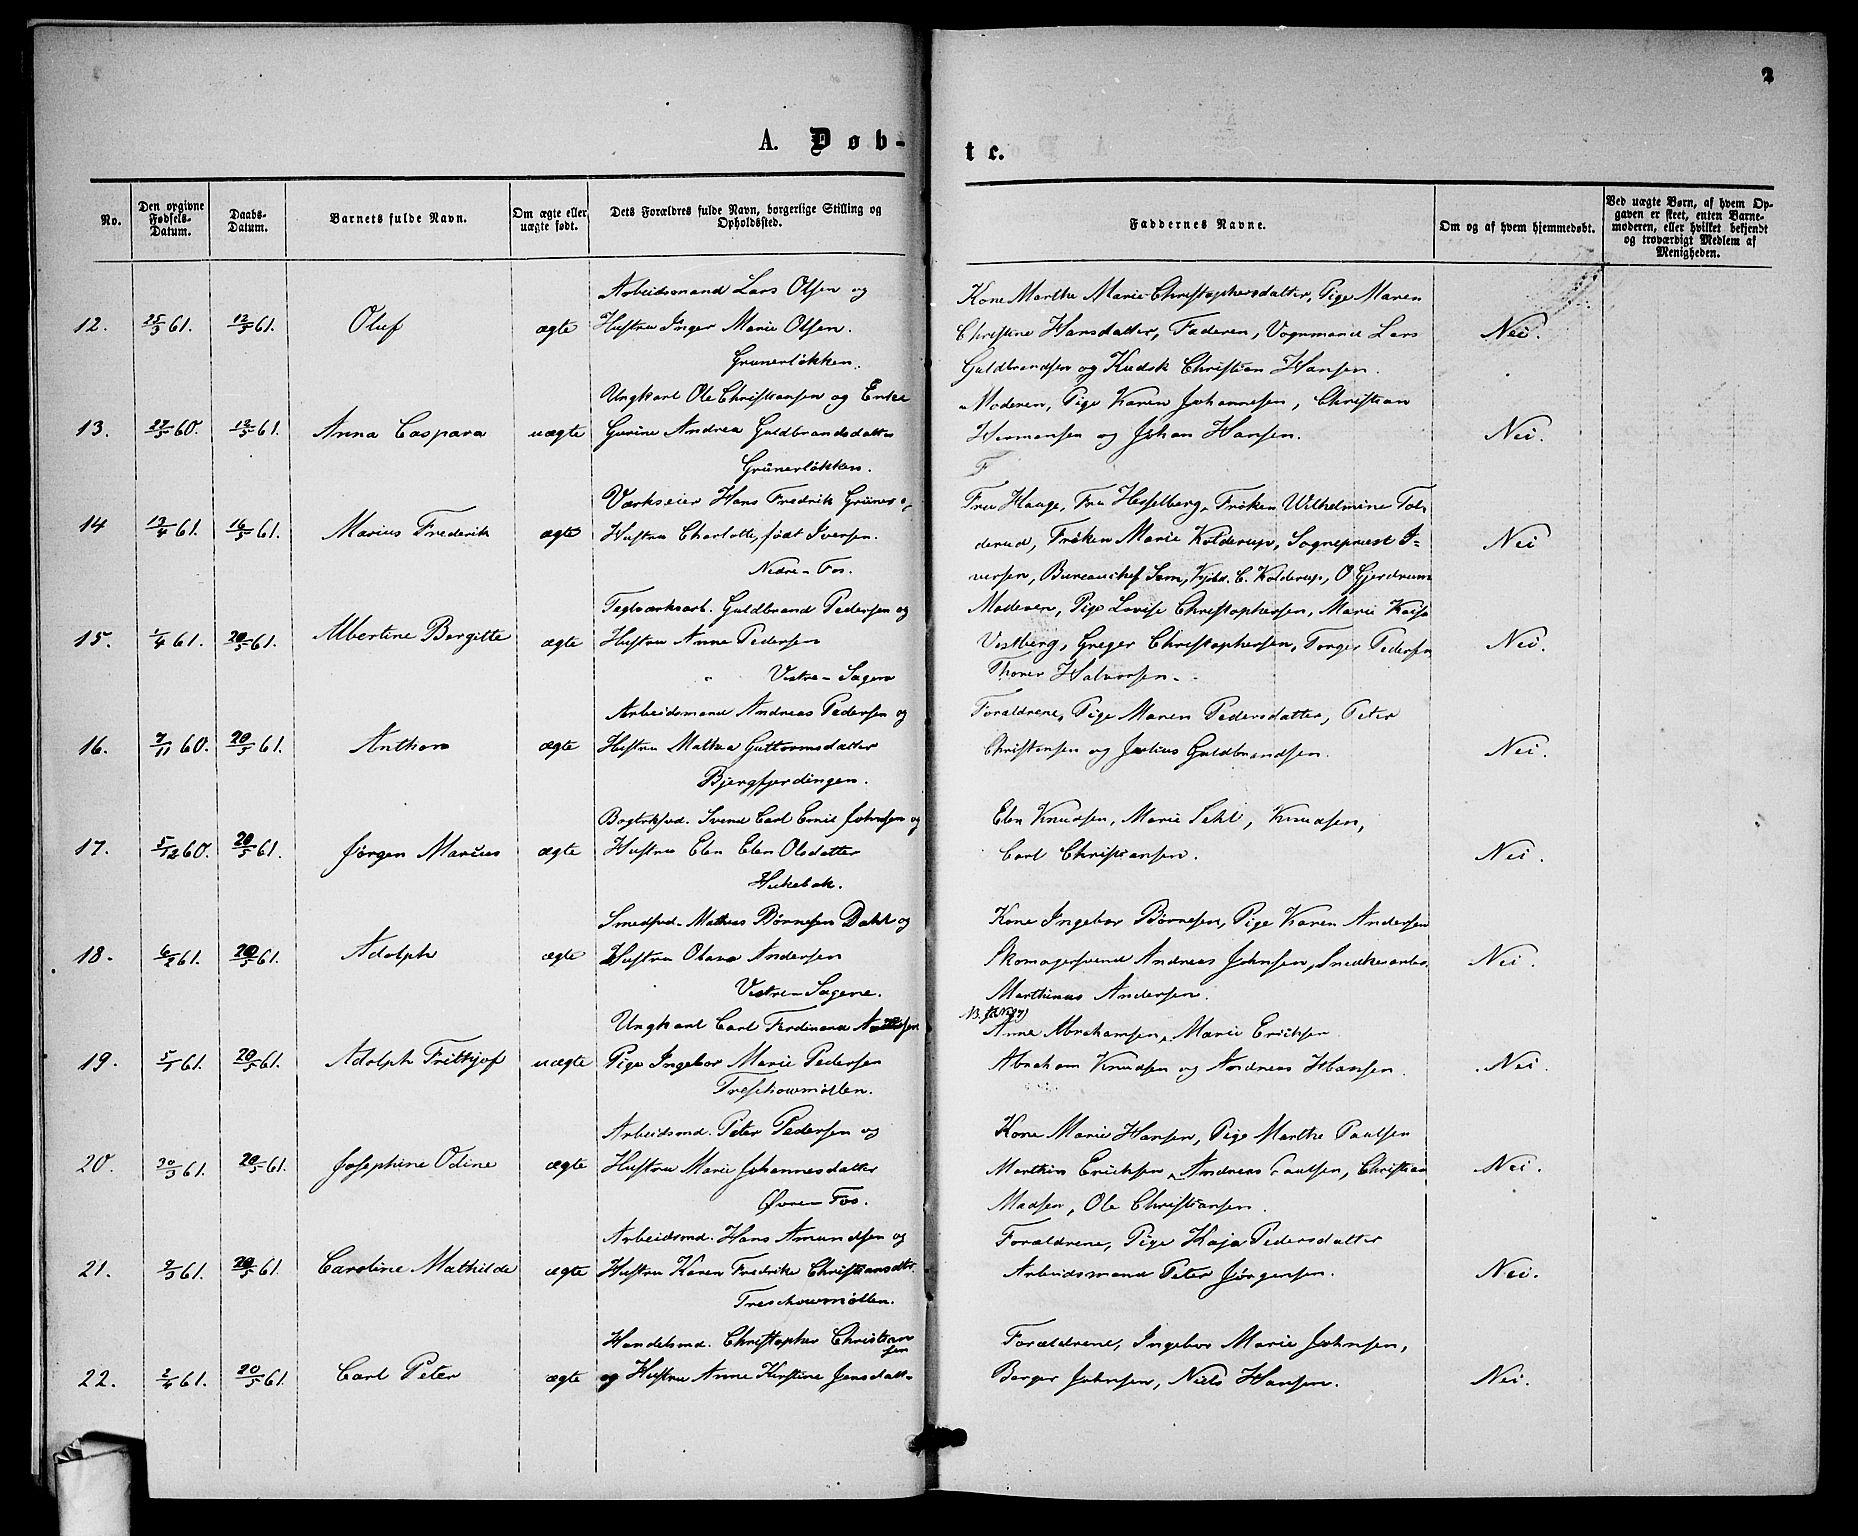 2
A. Døb-
te.
No.
Den opgivne Fødsels-Datum.
Daabs-Datum.
Barnets fulde Navn.
Om ægte eller uægte født.
Dets Forældres fulde Navn, borgerlige Stilling og Opholdssted.
Faddernes Navne.
Om og af hvem hjemmedøbt.
Ved uægte Børn, af hvem Opgaven er skeet, enten Barnemoderen, eller hvilket bekjendt og troværdigt Medlem af Menigheden.
Arbeidsmand Lars Olsen og
12. 25/3 61. 12/5 61. Oluf ægte Hustru Inger Marie Olsen.
Grunerløkken.
Kone Marthe Marie Christophersdatter, Pige Maren
Christine Hansdatter, Faderen, Vognmand Lars Nei.
Guldbrandsen og Kudsk Christian Hansen.
Ungkarl Ole Christiansen og Enke
13. 60. 12/5 61. Anna Caspara uægte Gurine Andrea Guldbrandsdatter
Grünerløkken.
Moderen, Pige Karen Johannesen, Christian
Hermansen og Johan Hansen. Nei.
F
Værkseier Hans Fredrik Grüner og
14 13/4 61. 16/5 61. Marius Frederik ægte Hustru Charlotte, født Iversen.
Nedre-Fos.
Fru Haage, Fru Hesselberg, Frøken Wilhelmine Tol-
derud, Frøken Marie Kolderup, Sognepræst I- Nei
versen, Bureauchef Sem, Kjbd. C. Kolderup, O Gjerdrum
Teglværksarb. Guldbrand Pedersen og
15. 1/4 61. 20/5 61. Albertine Bergitte ægte Hustru Anne Pedersen
Vestre-Sagene
Moderen, Pige Lovise Christophersen, Marie Kaisa
Vestberg, Greger Christophersen, Torger Pedersen Nei.
Thorer Halvorsen.
Arbeidsmand Andreas Pedersen og
16. 7/11 60. 20/5 61. Anthon ægte Hustru Mathea Guttormsdatter
Bjergfjerdingen.
Forældrene, Pige Maren Pedersdatter, Peter
Christensen og Julius Guldbrandsen. Nei.
Bogtrksvd. Svend Carl Emil Johnsen og
17. 5/12 60. 20/5 61. Jørgen Marius ægte Hustru Elen Elen Olsdatter
Elen Knudsen, Marie Sehl, Knudsen,
Carl Christiansen. Nei.
Smedsvd. Mathias Børnesen Dahl og
18. 6/2 61. 20/5 61. Adolph ægte Hustru Olava Andersen
Vestre-Sagene.
Kone Ingebor Børnesen, Pige Karen Andersen
Skomagersvend Andreas Johnsen, Snedkerarb. Nei.
Marthinus Andersen.
Ungkarl Carl Ferdinand
19. 5/1 61. 20/5 61. Adolph Frithjof uægte Pige Ingebor Marie Pedersen
Treschowmøllen.
Anne Abrahamsen, Marie Ericksen
Abraham Knudsen og Andreas Hansen. Nei.
Arbeidsmd. Peter Pedersen og
20. 30/3 61. 20/5 61. Josephine Odine ægte Hustru Marie Johannesdatter
Øvre-Fos.
Kone Marie Hansen, Pige Marthe Paulsen
Marthin Ericksen, Andreas Paulsen, Christian Nei.
Madsen, Ole Christiansen.
Arbeidsmd. Hans Amundsen og
21. 2/3 61. 20/5 61. Caroline Mathilde ægte Hustru Karen Fredrike Christiansdtr.
Treschowmøllen.
Forældrene, Pige Kaja Pedersdatter
Arbeidsmand Peter Jørgensen. Nei.
Handelsmd. Christopher Christiansen
22. 2/4 61. 20/5 61. Carl Peter ægte og Hustru Anne Kirstine Jensdatter
Forældrene, Ingebor Marie Johnsen,
Berger Johnsen, Niels Hansen. Nei.